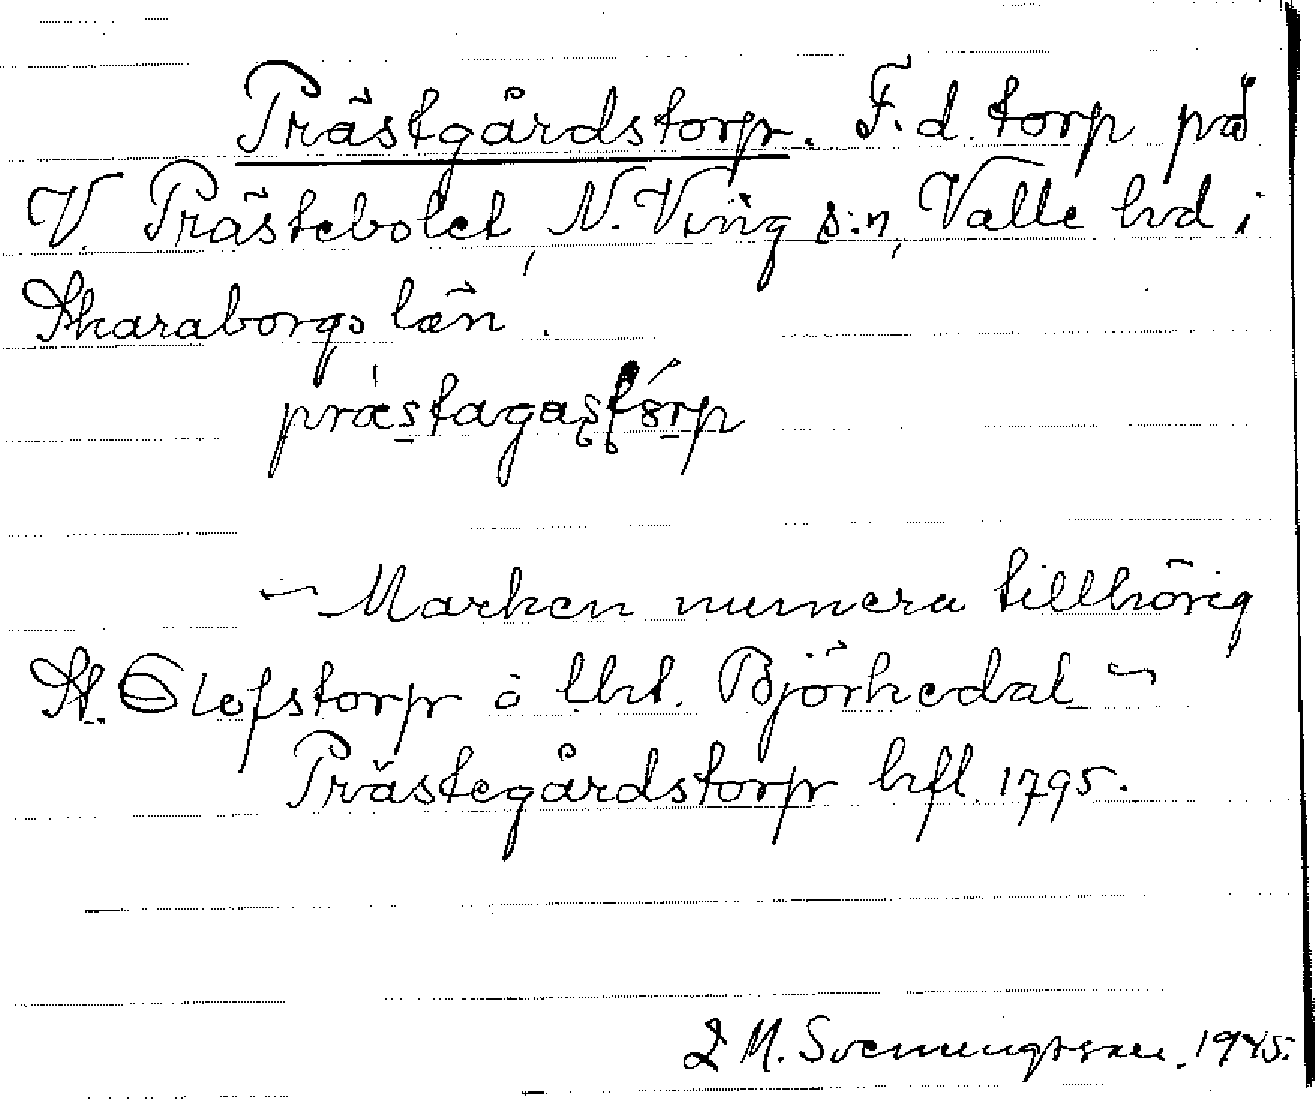 Prästgårdstorp. F.d. torp på
V. Prästebolet, N. Ving s:n, Valle hd i
Skaraborgs län.
præstagastórp
~ Marken numera tillhörig
St. Olofstorp o lht. Björkedal ~
Prästegårdstorp hfl. 1795.
M. Svenungsson. 1945.